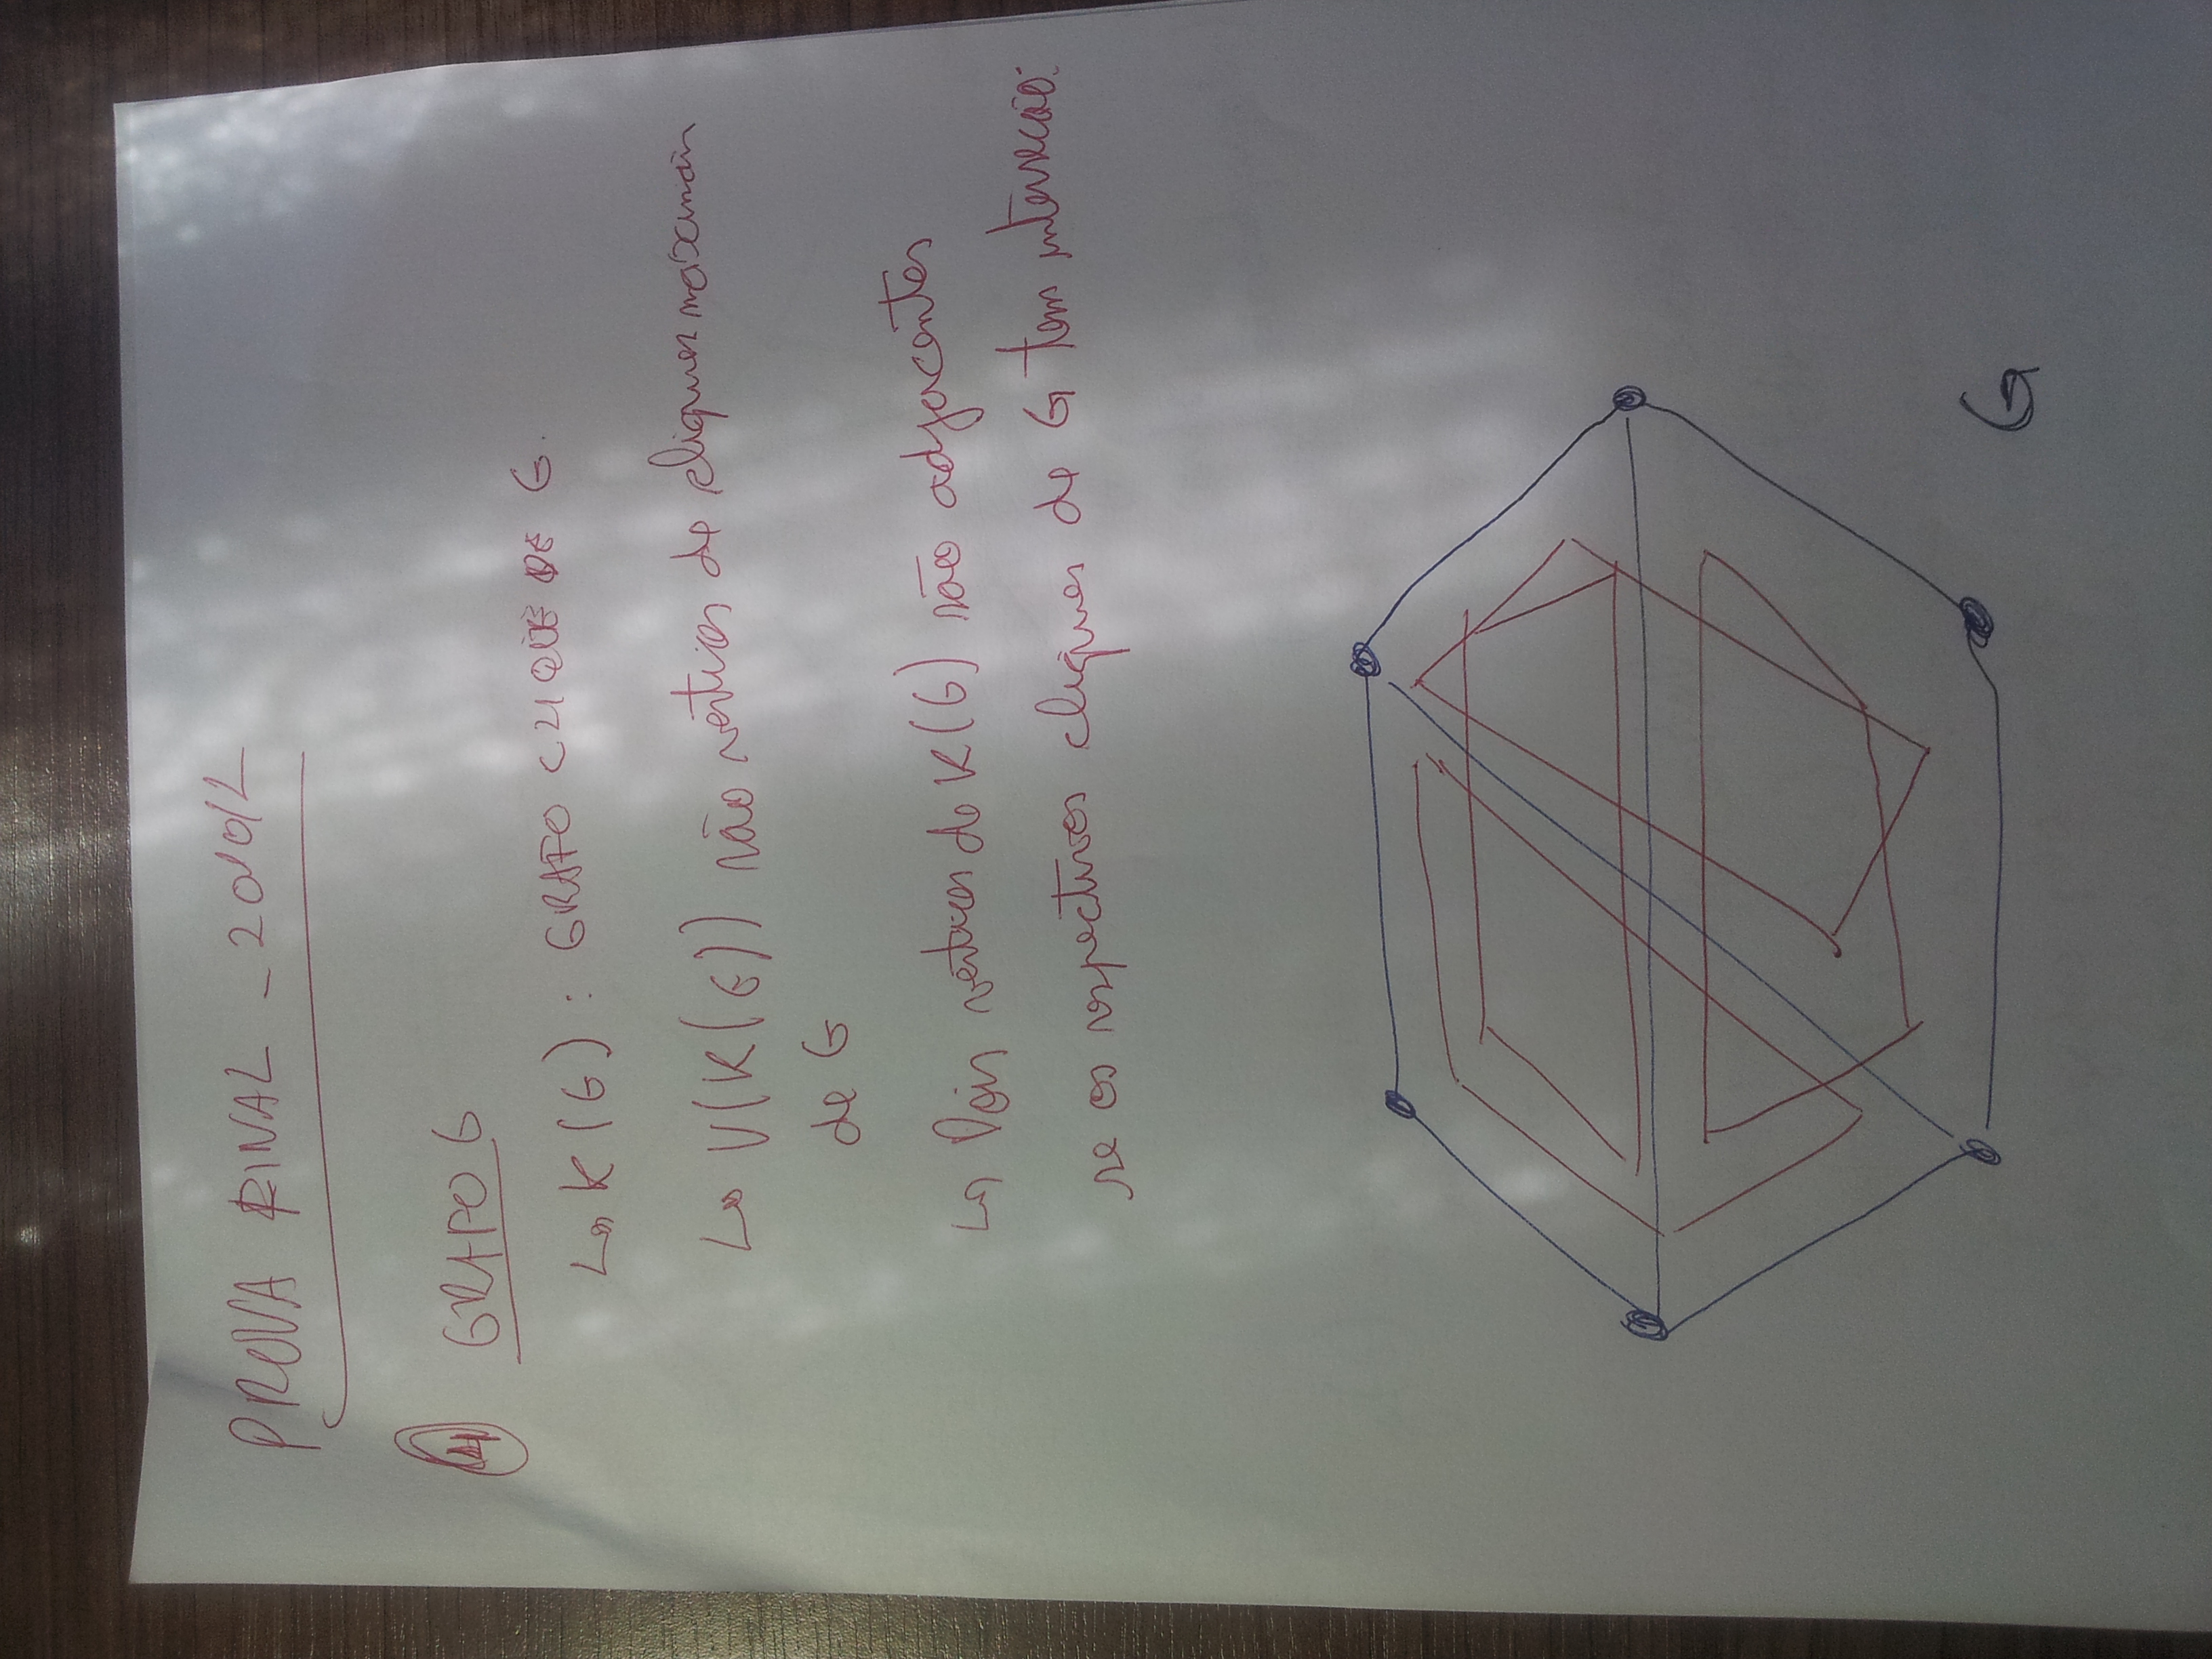 PROVA FINAL - 2010/2
4 GRAFO G
↳ K(G): GRAFO CLIQUE DE G.
↳ V(K(G)) são vértices de cliques maximais
de G
↳ Dois vértices de K(G) são adjacentes
se os respectivos cliques de G tem interseção.
G